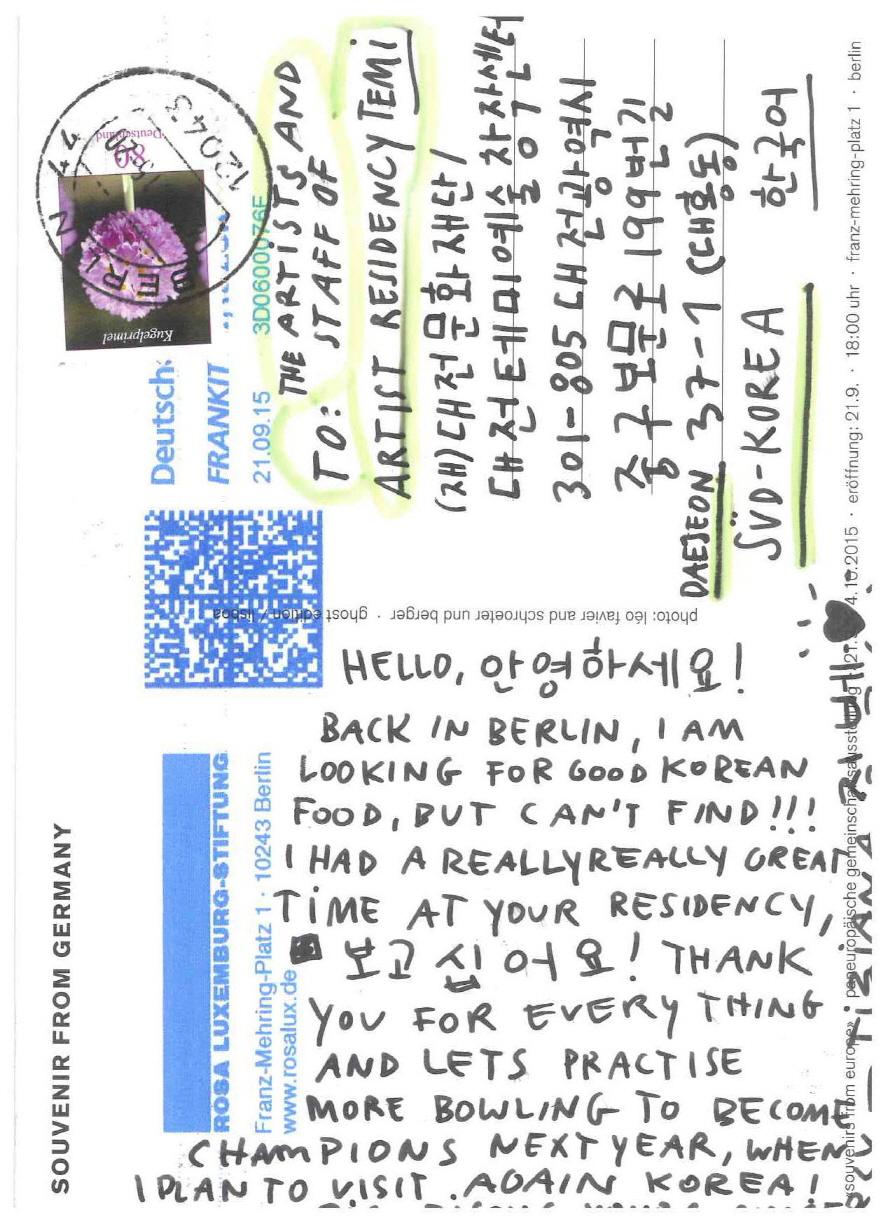 SOUVENIR FROM GERMANY
ROSA LUXEMBURG-STIFTUNG
Franz-Mehring-Platz 1 · 10243 Berlin
www.rosalux.de
Deutsch
FRANKIT
21.09.15 3D0600076F
Deutschland
80
Kugelprimel
BERLIN
12043
TO: THE ARTISTS AND
STAFF OF
ARTIST RESIDENCY TEMI
(재)대전문화재단/
대전테미예술창작센터
301-805 대전광역시
중구 보문로 199번길
DAEJEON 37-1 (대흥동)
SÜD-KOREA 한국어
photo: léo favier and schroeter und berger · ghost edition / lisboa
HELLO, 안영하세요!
BACK IN BERLIN, I AM
LOOKING FOR GOOD KOREAN
FOOD, BUT CAN'T FIND!!!
I HAD A REALLYREALLY GREAT
TIME AT YOUR RESIDENCY,
보고 십어요! THANK
YOU FOR EVERY THING
AND LETS PRACTISE
MORE BOWLING TO BECOME
CHAMPIONS NEXT YEAR, WHEN
I PLAN TO VISIT AGAIN KOREA!
TIZIANA
«souvenirs from europe» paneuropäische gemeinschaftsausstellung 21.9. 4.10.2015 · eröffnung: 21.9. · 18:00 uhr · franz-mehring-platz 1 · berlin